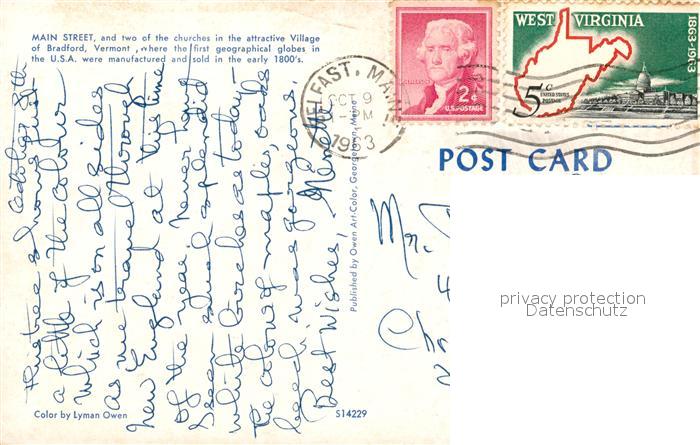 MAIN STREET, and two of the churches in the attractive Village
of Bradford, Vermont, where the first geographical globes in
the U.S.A. were manufactured and sold in the early 1800's.
October 8th
This tree shows just
a little of the colour
which is on all sides
as we travel through
New England at this time
of the year. Never have
seen such splendid
white birches as today
The colour of maples, oaks
beech was gorgeous.
Best Wishes,
Color by Lyman Owen
S14229
Published by Owen Art-Color, Georgetown, Maine
BELFAST, MAINE
OCT 9
PM
1963
JEFFERSON
2¢
U.S. POSTAGE
WEST VIRGINIA
1863-1963
5c
UNITED STATES
POSTAGE
POST CARD
Mr.
4
Ch
privacy protection
Datenschutz